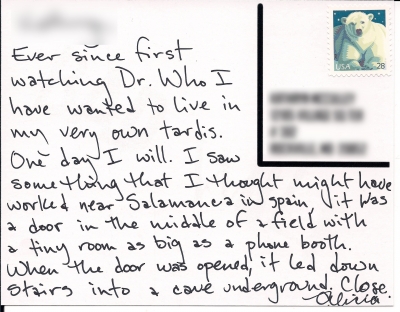 Ever since first
watching Dr. Who I
have wanted to live in
my very own tardis.
One day I will. I saw
something that I thought might have
worked near Salamanca in spain, it was
a door in the middle of a field with
a tiny room as big as a phone booth.
When the door was opened, it led down
stairs into a cave underground. Close.
Alivia.
USA 28